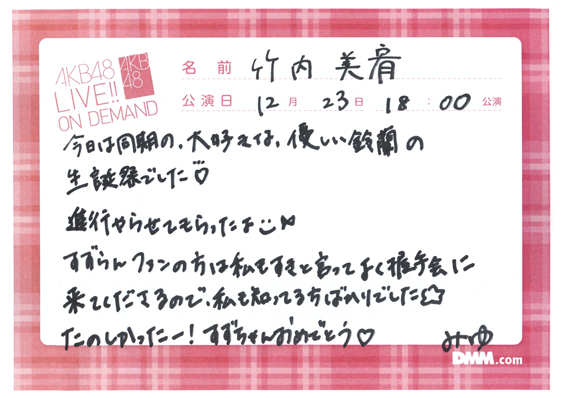 AKB48
LIVE!!
ON DEMAND
AKB
48
名前 竹内美宥
公演日 12月 23日 18:00公演
今日は同期の、大好きな、優しい鈴蘭の
生誕祭でした♡
進行やらせてもらったよ
すずらんファンの方は私もすきと言ってよく握手会に
来てくださるので、私も知ってる方ばかりでした☆
たのしかったー！すずちゃんおめでとう♡
みゆ
DMM.com